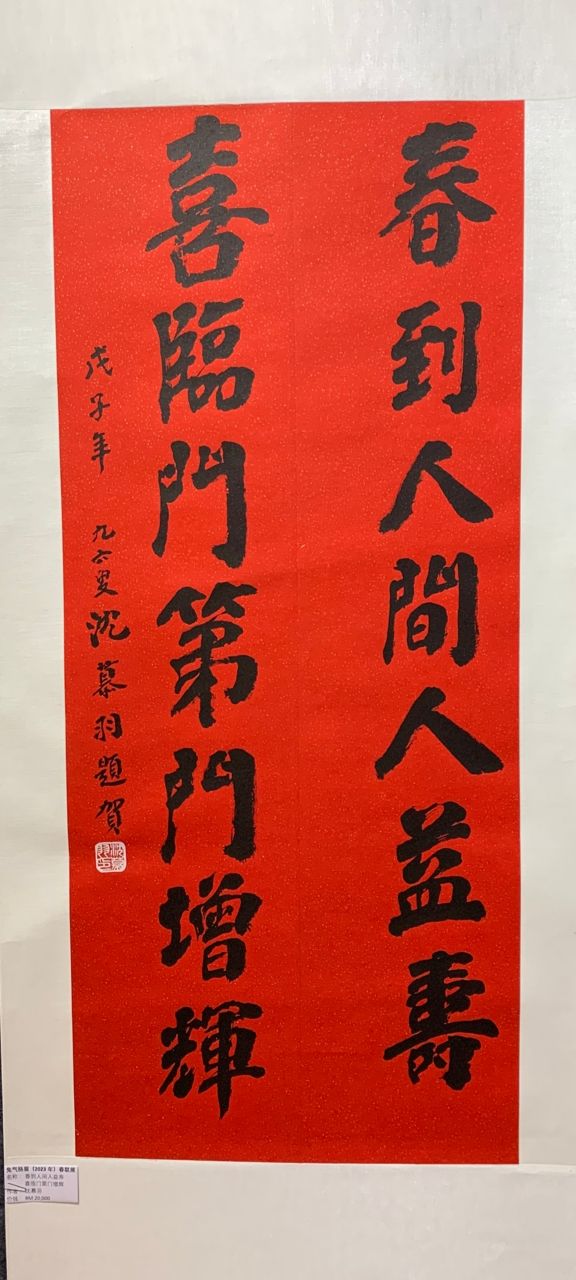 春到人間人益壽
喜臨門第門增輝
戊子年 九六叟沈慕羽題賀
兔气扬眉（2023 年）春联展
名称：春到人间人益寿
喜临门第门增辉
作者：沈慕羽
价钱：RM 20,000